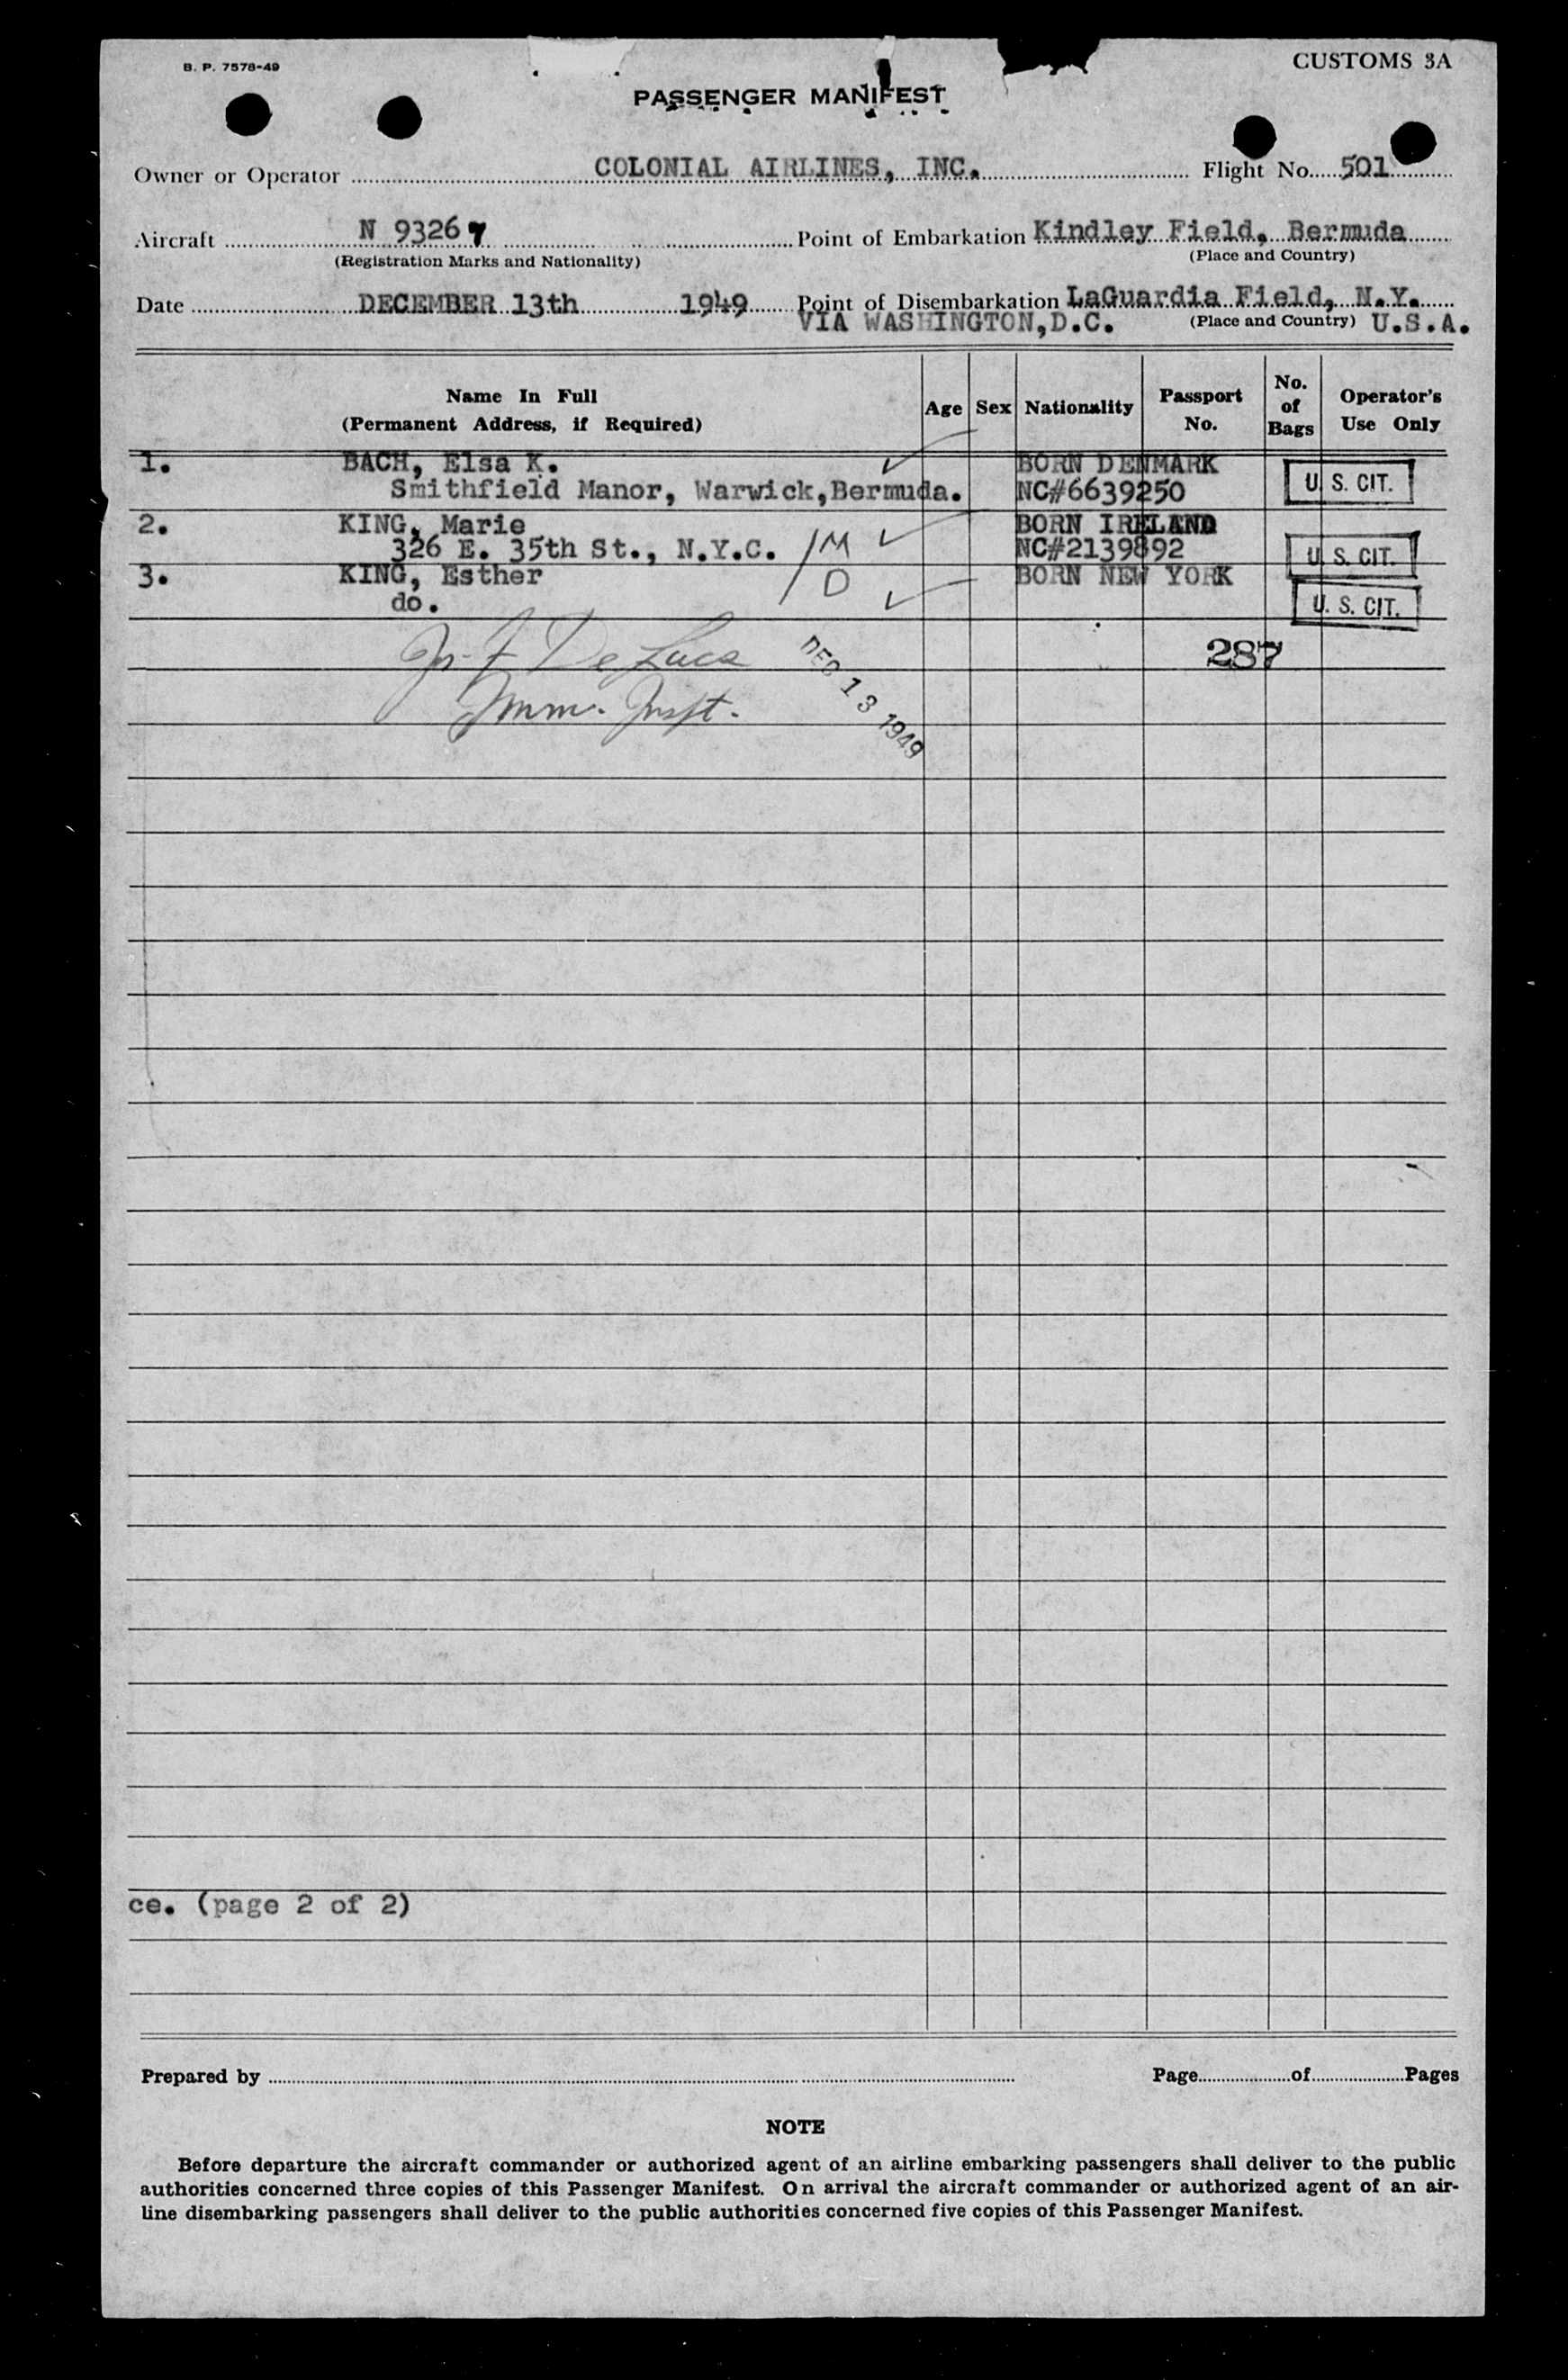 B. P. 7578-49
CUSTOMS 3A
PASSENGER MANIFEST
Owner or Operator COLONIAL AIRLINES, INC. Flight No. 501
Aircraft N 93267 Point of Embarkation Kindley Field, Bermuda
(Registration Marks and Nationality) (Place and Country)
Date DECEMBER 13th 1949 Point of Disembarkation LaGuardia Field, N.Y.
VIA WASHINGTON,D.C. (Place and Country) U.S.A.
Name In Full (Permanent Address, if Required) Age Sex Nationality Passport No. No. of Bags Operator's Use Only
1. BACH, Elsa K. BORN DENMARK
Smithfield Manor, Warwick,Bermuda. NC#6639250 U. S. CIT.
2. KING, Marie BORN IRELAND
326 E. 35th St., N.Y.C. M NC#2139892 U. S. CIT.
3. KING, Esther D BORN NEW YORK
do. U. S. CIT.
De Luca DEC 13 1949 287
Imm. Inspt.
ce. (page 2 of 2)
Prepared by Page of Pages
NOTE
Before departure the aircraft commander or authorized agent of an airline embarking passengers shall deliver to the public
authorities concerned three copies of this Passenger Manifest. On arrival the aircraft commander or authorized agent of an air-
line disembarking passengers shall deliver to the public authorities concerned five copies of this Passenger Manifest.